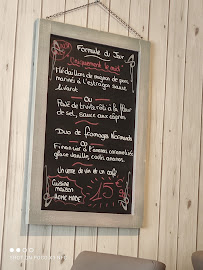 Formule du Jour
Uniquement le midi
Médaillons de mignon de porc
marinés à l'estragon sauce
livarot
OU
Pavé de truite rôti à la fleur
de sel, sauce aux câpres
Duo de fromages Normands
OU
Financier à l'ananas caramélisé
glace vanille, coulis ananas
Un verre de vin et un café
Cuisine
maison
HOME MADE
15€